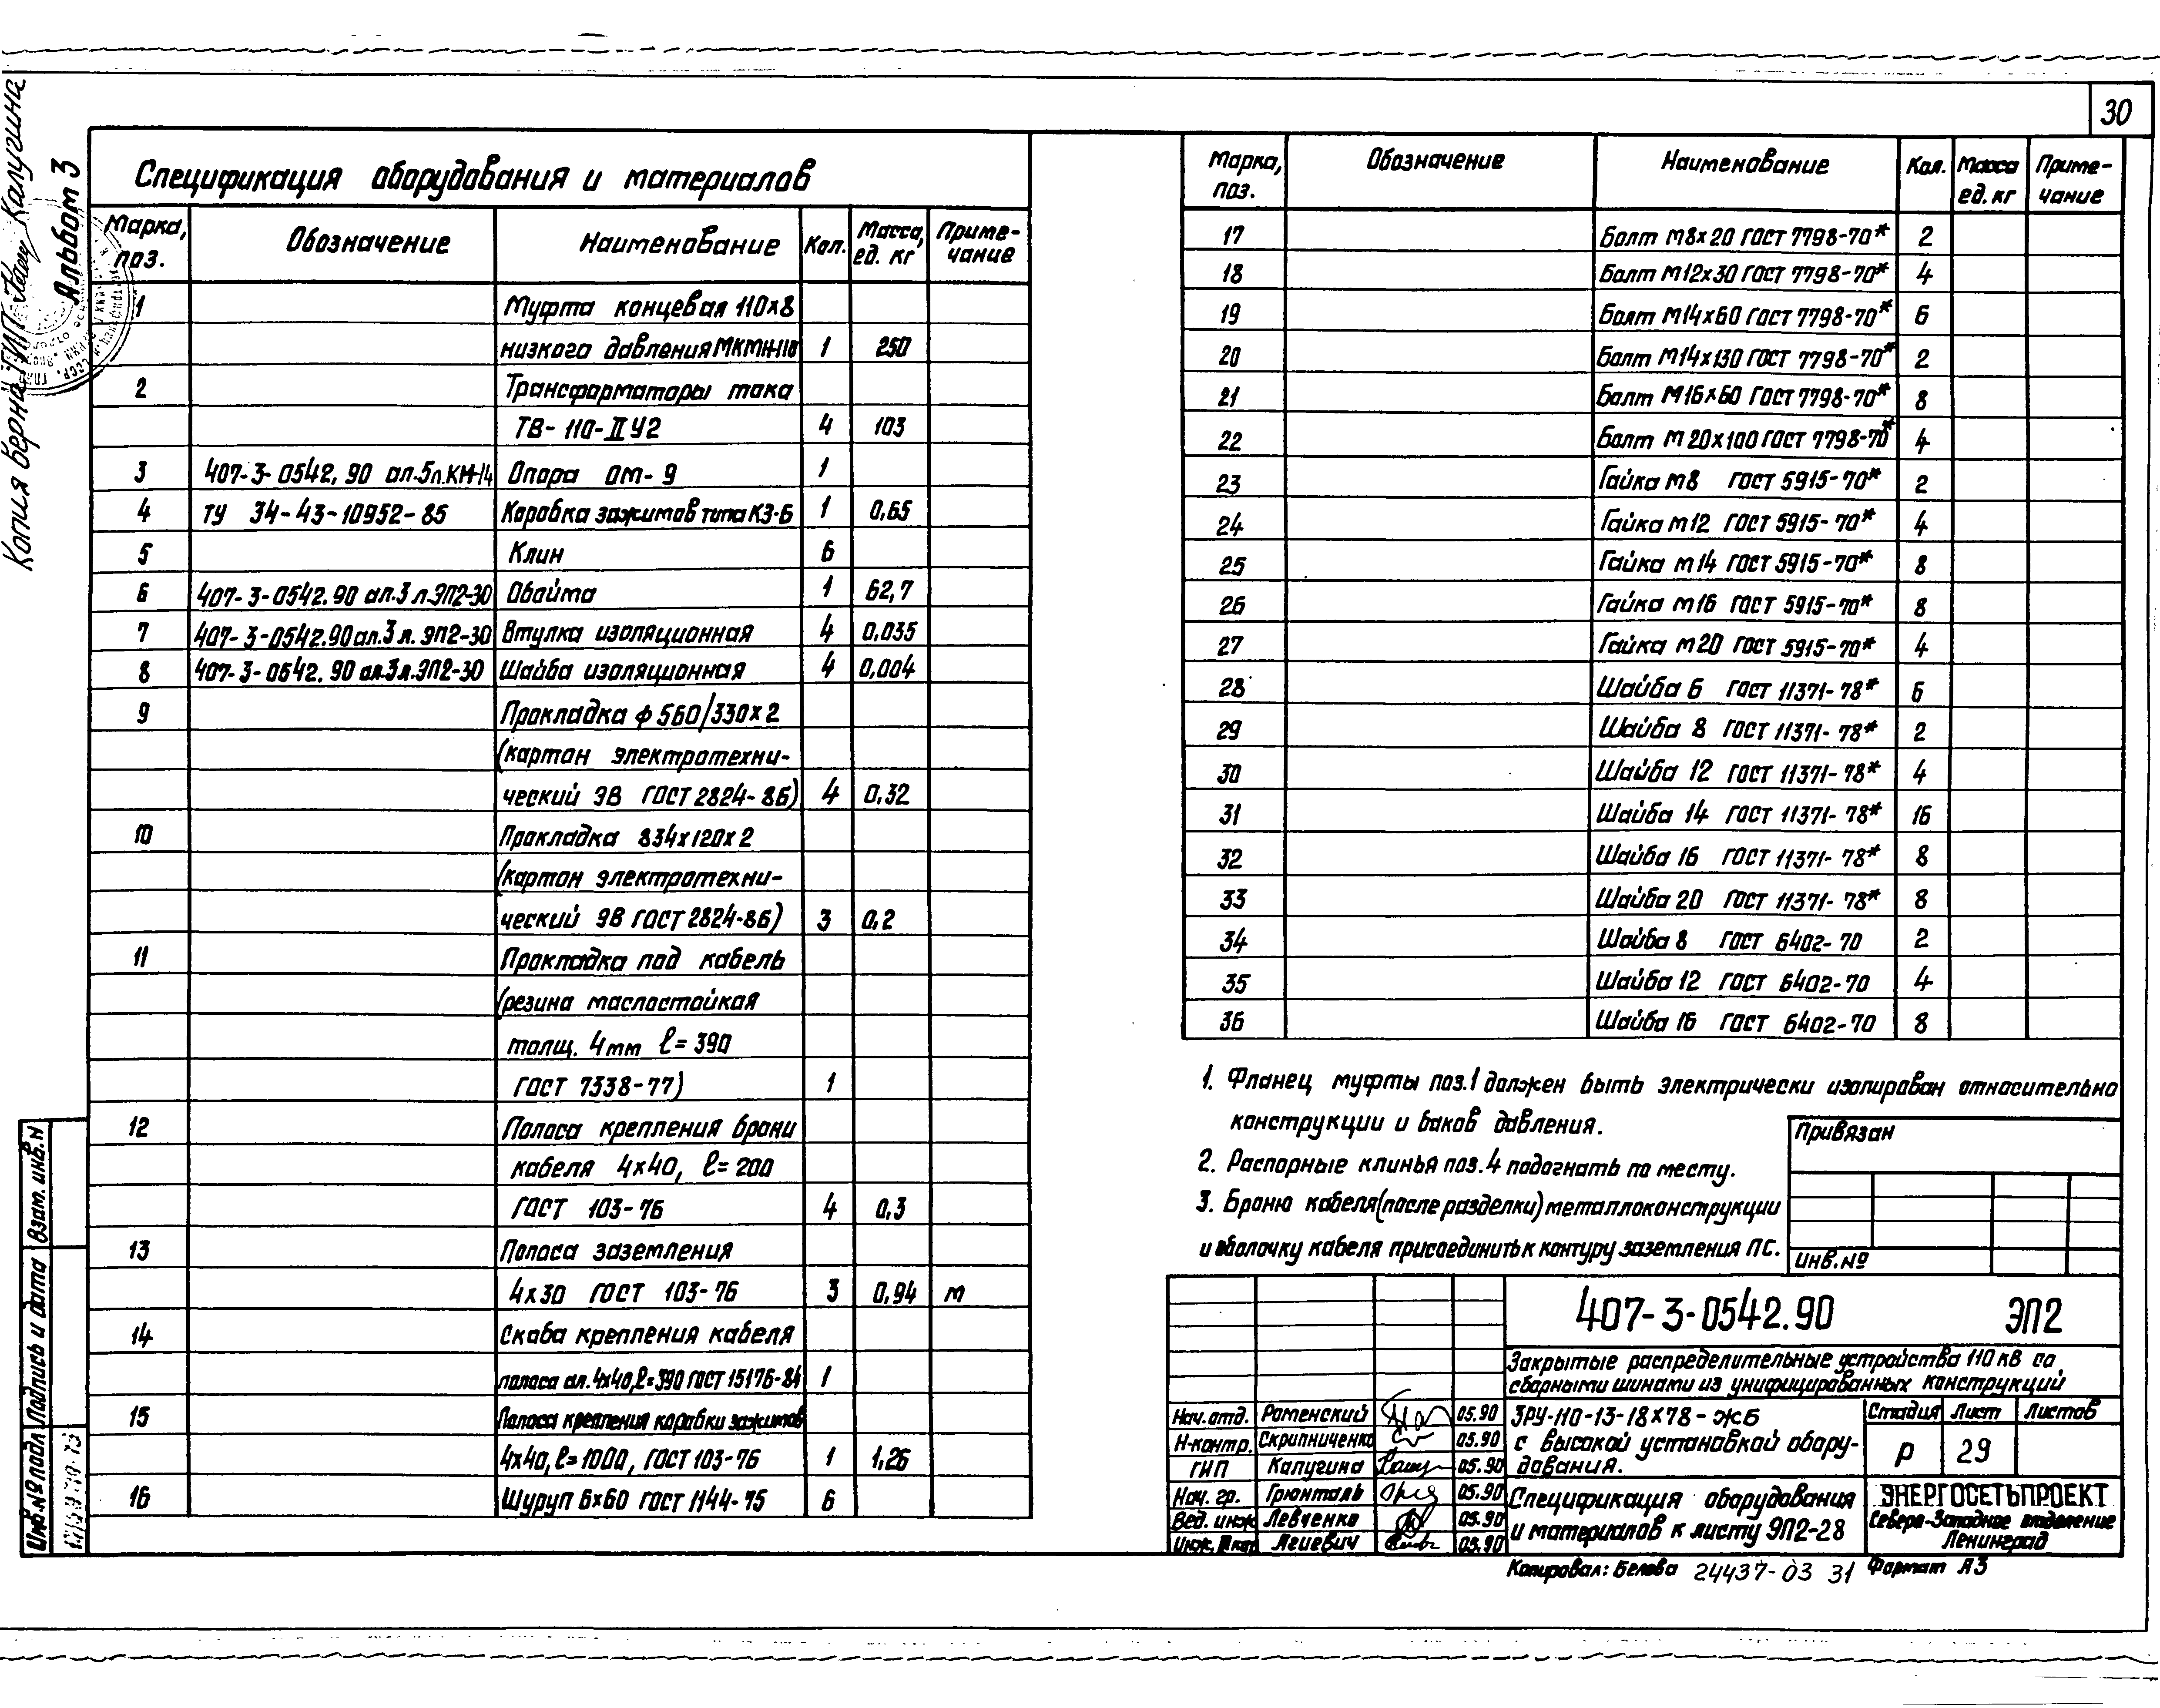 30
Копия верна ГИП Калугина
Альбом 3
Спецификация оборудования и материалов
Марка, поз. Обозначение Наименование Кол. Масса, ед. кг Приме-чание
1 Муфта концевая 110х8
низкого давления МКТН-110 1 250
2 Трансформаторы тока
ТВ-110-II У2 4 103
3 407-3-0542,90 ал.5 л.КМ-14 Опора ОМ-9 1
4 ТУ 34-43-10952-85 Коробка зажимов типа КЗ-Б 1 0,65
5 Клин 6
6 407-3-0542.90 ал.3 л.ЭП2-30 Обойма 1 62,7
7 407-3-0542.90 ал.3 л.ЭП2-30 Втулка изоляционная 4 0,035
8 407-3-0542.90 ал.3 л.ЭП2-30 Шайба изоляционная 4 0,004
9 Прокладка ф 560/330х2
(картон электротехни-
ческий ЭВ ГОСТ 2824-86) 4 0,32
10 Прокладка 834х120х2
(картон электротехни-
ческий ЭВ ГОСТ 2824-86) 3 0,2
11 Прокладка под кабель
(резина маслостойкая
толщ. 4мм ℓ=390
ГОСТ 7338-77) 1
12 Полоса крепления брони
кабеля 4х40, ℓ=200
ГОСТ 103-76 4 0,3
13 Полоса заземления
4х30 ГОСТ 103-76 3 0,94 м
14 Скоба крепления кабеля
полоса ал. 4х40, ℓ=390 ГОСТ 15176-84 1
15 Полоса крепления коробки зажимов
4х40, ℓ=1000, ГОСТ 103-76 1 1,26
16 Шуруп 6х60 ГОСТ 1144-75 6
Марка, поз. Обозначение Наименование Кол. Масса ед. кг Приме-чание
17 Болт М8х20 ГОСТ 7798-70* 2
18 Болт М12х30 ГОСТ 7798-70* 4
19 Болт М14х60 ГОСТ 7798-70* 6
20 Болт М14х130 ГОСТ 7798-70* 2
21 Болт М16х60 ГОСТ 7798-70* 8
22 Болт М20х100 ГОСТ 7798-70* 4
23 Гайка М8 ГОСТ 5915-70* 2
24 Гайка М12 ГОСТ 5915-70* 4
25 Гайка М14 ГОСТ 5915-70* 8
26 Гайка М16 ГОСТ 5915-70* 8
27 Гайка М20 ГОСТ 5915-70* 4
28 Шайба 6 ГОСТ 11371-78* 6
29 Шайба 8 ГОСТ 11371-78* 2
30 Шайба 12 ГОСТ 11371-78* 4
31 Шайба 14 ГОСТ 11371-78* 16
32 Шайба 16 ГОСТ 11371-78* 8
33 Шайба 20 ГОСТ 11371-78* 8
34 Шайба 8 ГОСТ 6402-70 2
35 Шайба 12 ГОСТ 6402-70 4
36 Шайба 16 ГОСТ 6402-70 8
1. Фланец муфты поз.1 должен быть электрически изолирован относительно
конструкции и баков давления.
2. Распорные клинья поз.4 подогнать по месту.
3. Броню кабеля (после разделки) металлоконструкции
и оболочку кабеля присоединить к контуру заземления ПС.
Привязан
Инв.№
407-3-0542.90 ЭП2
Закрытые распределительные устройства 110 кВ со
сборными шинами из унифицированных конструкций
Нач.отд. Роменский 05.90
Н-контр. Скрипниченко 05.90
ГИП Калугина 05.90
Нач. гр. Грюнталь 05.90
Вед. инж Левченко 05.90
Инж. II кат Легевич 05.90
ЗРУ-110-13-18х78-ЖБ
с высокой установкой обору-
дования.
Стадия Лист Листов
Р 29
Спецификация оборудования
и материалов к листу ЭП2-28
ЭНЕРГОСЕТЬПРОЕКТ
Северо-Западное отделение
Ленинград
Копировал: Белова 24437-03 31 Формат А3
Взам. инв.N
Подпись и дата
Инв.№ подл.